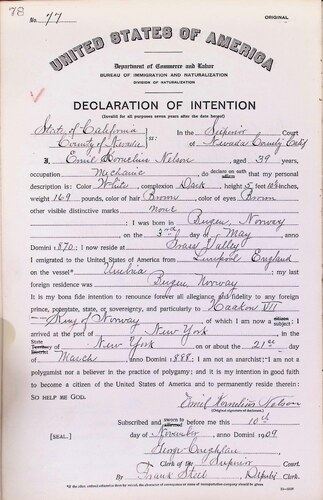 78
No. 77
ORIGINAL
UNITED STATES OF AMERICA
Department of Commerce and Labor
BUREAU OF IMMIGRATION AND NATURALIZATION
DIVISION OF NATURALIZATION
DECLARATION OF INTENTION
(Invalid for all purposes seven years after the date hereof)
State of California
In the Superior Court
County of Nevada ss: of Nevada County Calif
I, Emil Kornelius Nelson, aged 39 years,
occupation Mechanic, do declare on oath that my personal
description is: Color White, complexion Dark, height 5 feet inches,
weight 169 pounds, color of hair Brown, color of eyes Brown
other visible distinctive marks none
I was born in Bergen, Norway
on the day of May, anno
Domini 1870; I now reside at Grass Valley
I emigrated to the United States of America from Liverpool England
on the vessel Umbria; my last
foreign residence was Bergen Norway
It is my bona fide intention to renounce forever all allegiance and fidelity to any foreign
prince, potentate, state, or sovereignty, and particularly to Haakon VII
King of Norway, of which I am now a subject; I
arrived at the port of New York, in the
State Territory District of New York on or about the 21st day
of March, anno Domini 1888; I am not an anarchist; I am not a
polygamist nor a believer in the practice of polygamy; and it is my intention in good faith
to become a citizen of the United States of America and to permanently reside therein:
SO HELP ME GOD.
Emil Kornelius Nelson
(Original signature of declarant.)
Subscribed and sworn to before me this 10th
[SEAL.] day of November, anno Domini 1909
George Coughlan
Clerk of the Superior Court.
By Frank Steel, Deputy Clerk.